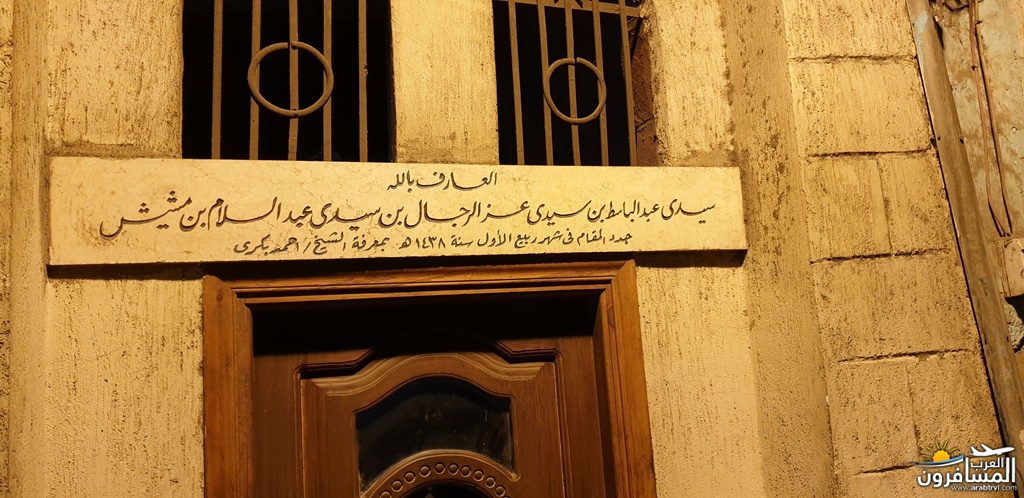 العارف بالله
سيدى عبد الباسط بن سيدى عز الرجال بن سيدى عبد السلام بن مشيش
جدد المقام فى شهر ربيع الأول سنة ١٤٣٨هـ بمعرفة الشيخ/ احمد بكرى
العرب
المسافرون
www.arabtrvl.com